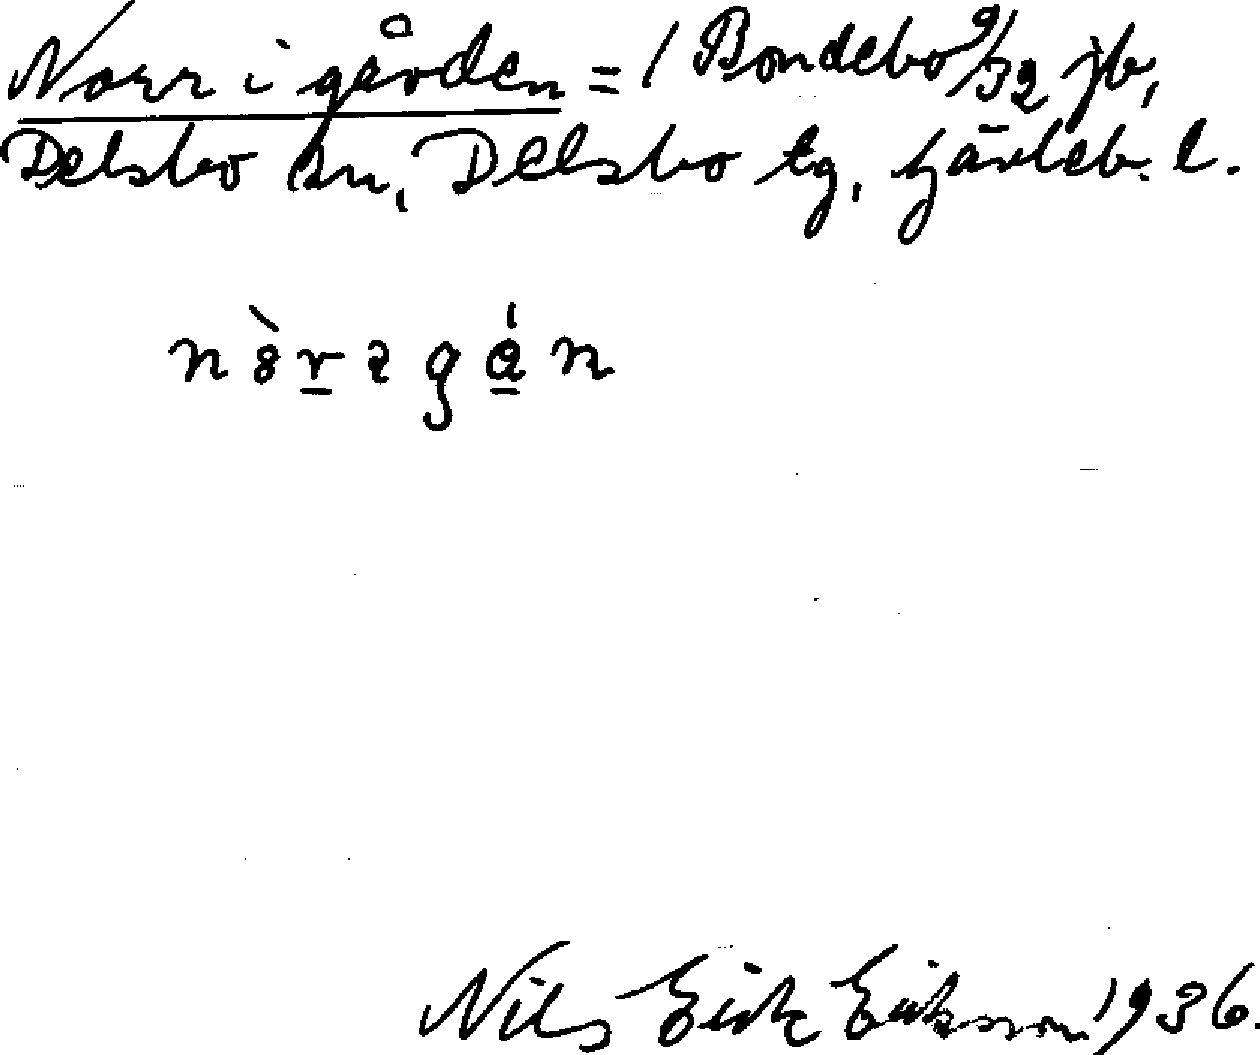 Norr i gården = 1 Bondebo 9/32 jb,
Delsbo sn, Delsbo tg, Gävleb. l.
Nils Erik Eriksson 1936.